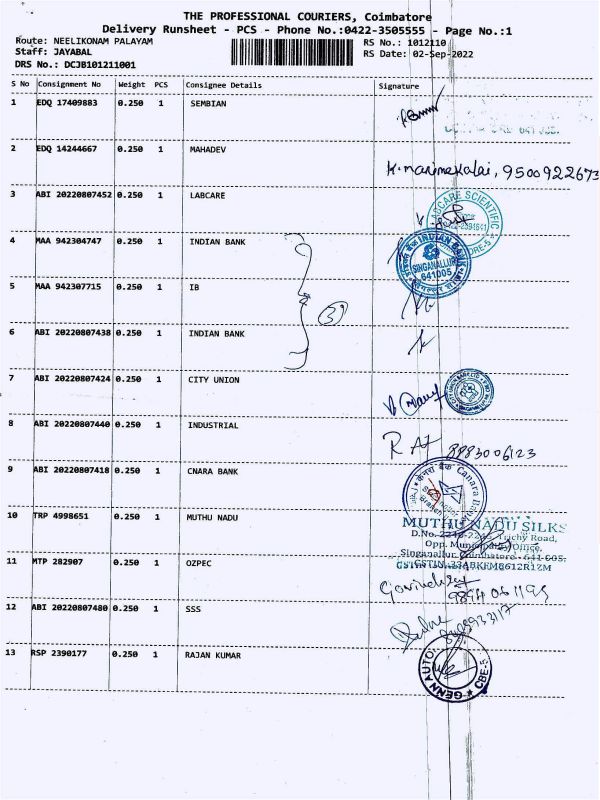 THE PROFESSIONAL COURIERS, Coimbatore
Delivery Runsheet - PCS - Phone No.:0422-3505555 - Page No.:1
Route: NEELIKONAM PALAYAM
RS No.: 1012110
Staff: JAYABAL
RS Date: 02-Sep-2022
DRS No.: DCJB101211001
S No Consignment No Weight PCS Consignee Details Signature
1 EDQ 17409883 0.250 1 SEMBIAN
2 EDQ 14244667 0.250 1 MAHADEV
K. manimekalai, 9500922673
3 ABI 20220807452 0.250 1 LABCARE
LABCARE SCIENTIFIC
4 MAA 942304747 0.250 1 INDIAN BANK
INDIAN BANK
SINGANALLUR
641005
5 MAA 942307715 0.250 1 IB
3
6 ABI 20220807438 0.250 1 INDIAN BANK
7 ABI 20220807424 0.250 1 CITY UNION
8 ABI 20220807440 0.250 1 INDUSTRIAL
9 ABI 20220807418 0.250 1 CNARA BANK
केनरा बैंक Canara Bank
10 TRP 4998651 0.250 1 MUTHU NADU
MUTHU NADU SILKS
D.No. Trichy Road,
Opp. Municipal Office,
Singanallur, Coimbatore - 641 005.
11 MTP 282907 0.250 1 OZPEC
12 ABI 20220807480 0.250 1 SSS
13 RSP 2390177 0.250 1 RAJAN KUMAR
GENN AUTO
CBE-5